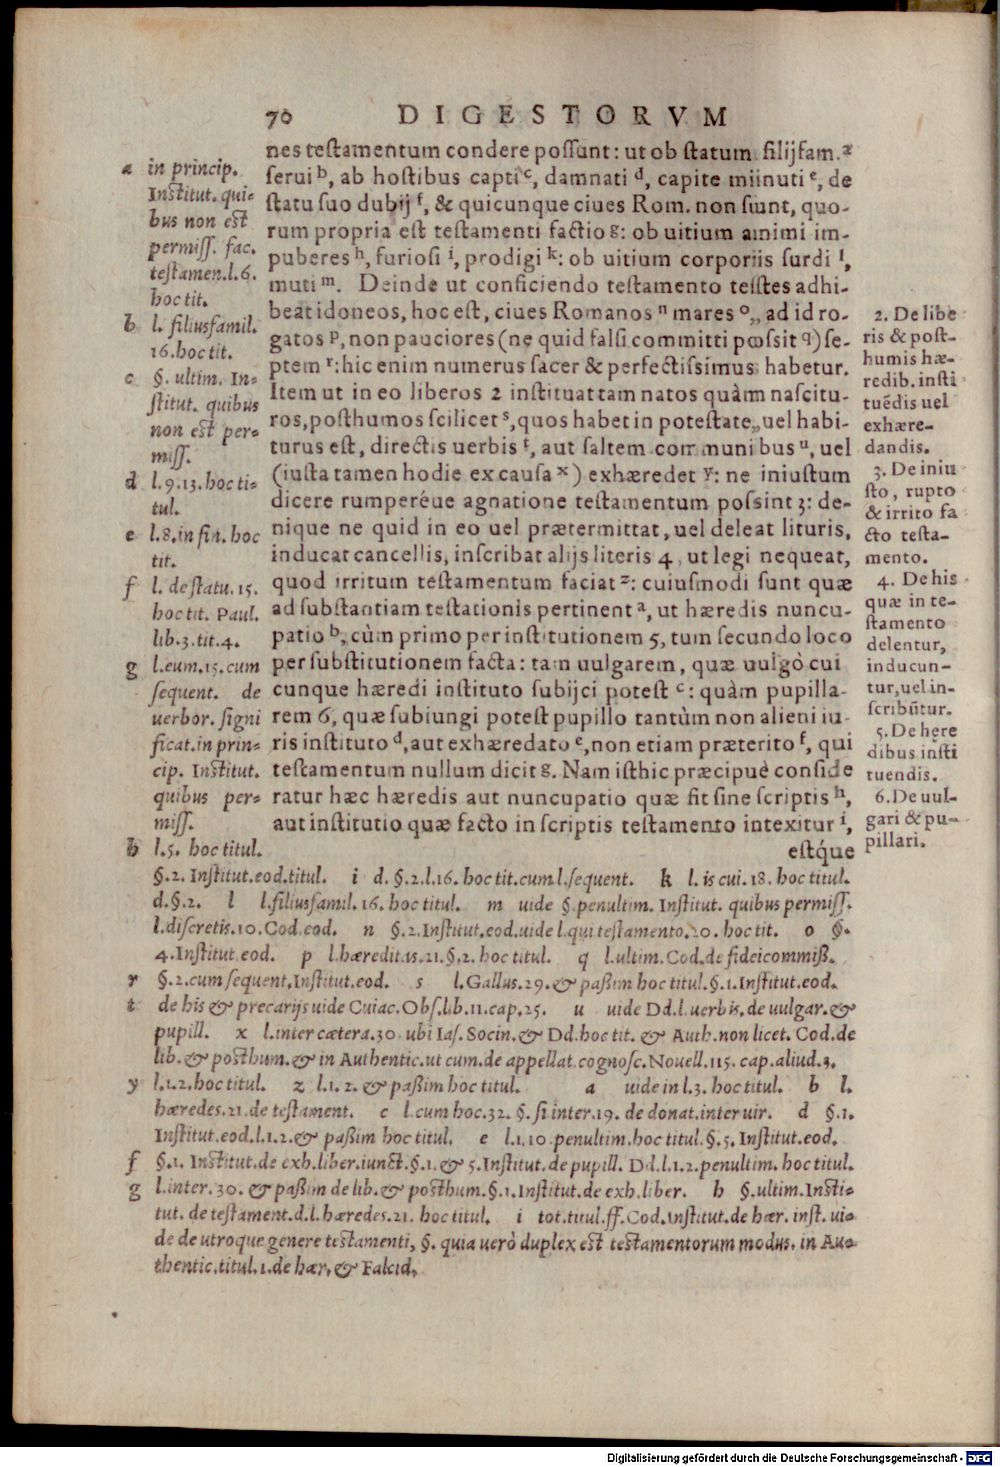 70 DIGESTORVM
nes testamentum condere possunt: ut ob statum filijfam. a
serui b, ab hostibus capti c, damnati d, capite miinuti e, de
statu suo dubij f, & quicunque ciues Rom. non siunt, quo-
rum propria est testamenti factio g: ob uitium animi im-
puberes h, furiosi i, prodigi k: ob uitium corporiis surdi l,
muti m. Deinde ut conficiendo testamento teistes adhi-
beat idoneos, hoc est, ciues Romanos n mares o, ad id ro-
gatos p, non pauciores (ne quid falsi committi possit q) se-
ptem r: hic enim numerus sacer & perfectissimus habetur.
Item ut in eo liberos 2 instituat tam natos quàm nascitu-
ros, posthumos scilicet s, quos habet in potestate, uel habi-
turus est, directis uerbis t, aut saltem communibus u, uel
(iusta tamen hodie ex causa x) exhæredet y: ne iniustum
dicere rumperéue agnatione testamentum possint 3: de-
nique ne quid in eo uel prætermittat, uel deleat lituris,
inducat cancellis, inscribat alijs literis 4, ut legi nequeat,
quod irritum testamentum faciat z: cuiusmodi sunt quæ
ad substantiam testationis pertinent a, ut hæredis nuncu-
patio b, cùm primo per institutionem 5, tum secundo loco
per substitutionem facta: tam uulgarem, quæ uulgò cui
cunque hæredi instituto subijci potest c: quàm pupilla-
rem 6, quæ subiungi potest pupillo tantùm non alieni iu-
ris instituto d, aut exhæredato e, non etiam præterito f, qui
testamentum nullum dicit g. Nam isthic præcipuè conside
ratur hæc hæredis aut nuncupatio quæ fit sine scriptis h,
aut institutio quæ facto in scriptis testamento intexitur i,
estq́ue
a in princip.
Institut. qui-
bus non est
permiss. fac.
testamen. l. 6.
hoc tit.
b l. filiusfamil.
16. hoc tit.
c §. ultim. In-
stitut. quibus
non est per-
miss.
d l. 9. 13. hoc ti-
tul.
e l. 8. in fin. hoc
tit.
f l. de statu. 15.
hoc tit. Paul.
lib. 3. tit. 4.
g l. eum. 15. cum
sequent. de
uerbor. signi
ficat. in prin-
cip. Institut.
quibus per-
miss.
h l. 5. hoc titul.
2. De libe
ris & post-
humis hæ-
redib. insti
tuẽdis uel
exhære-
dandis.
3. De iniu
sto, rupto
& irrito fa
cto testa-
mento.
4. De his
quæ in te-
stamento
delentur,
inducun-
tur, uel in-
scribũtur.
5. De here
dibus insti
tuendis.
6. De uul-
gari & pu-
pillari.
§. 2. Institut. eod. titul. i d. §. 2. l. 16. hoc tit. cum l. sequent. k l. is cui. 18. hoc titul.
d. §. 2. l l. filiusfamil. 16. hoc titul. m uide §. penultim. Institut. quibus permiss.
l. discretis. 10. Cod. eod. n §. 2. Institut. eod. uide l. qui testamento. 20. hoc tit. o §.
4. Institut. eod. p l. hæreditas. 21. §. 2. hoc titul. q l. ultim. Cod. de fideicommiß.
r §. 2. cum sequent. Institut. eod. s l. Gallus. 29. & paßim hoc titul. §. 1. Institut. eod.
t de his & precarijs uide Cuiac. Obs. lib. 11. cap. 25. u uide Dd. l. uerbis, de uulgar. &
pupill. x l. inter cætera. 30. ubi Ias. Socin. & Dd. hoc tit. & Auth. non licet. Cod. de
lib. & posthum. & in Authentic. ut cum. de appellat. cognosc. Nouell. 115. cap. aliud. 3.
y l. 1. 2. hoc titul. z l. 1. 2. & paßim hoc titul. a uide in l. 3. hoc titul. b l.
hæredes. 21. de testament. c l. cum hoc. 32. §. si inter. 19. de donat. inter uir. d §. 1.
Institut. eod. l. 1. 2. & paßim hoc titul. e l. 1. 10. penultim. hoc titul. §. 5. Institut. eod.
f §. 1. Institut. de exh. liber. iunct. §. 1. & 5. Institut. de pupill. Dd. l. 1. 2. penultim. hoc titul.
g l. inter. 30. & paßim de lib. & posthum. §. 1. Institut. de exh. liber. h §. ultim. Insti-
tut. de testament. d. l. hæredes. 21. hoc titul. i tot. titul. ff. Cod. Institut. de hær. inst. ui-
de de utroque genere testamenti, §. quia uerò duplex est testamentorum modus. in Au-
thentic. titul. 1. de hær. & Falcid.
Digitalisierung gefördert durch die Deutsche Forschungsgemeinschaft - DFG